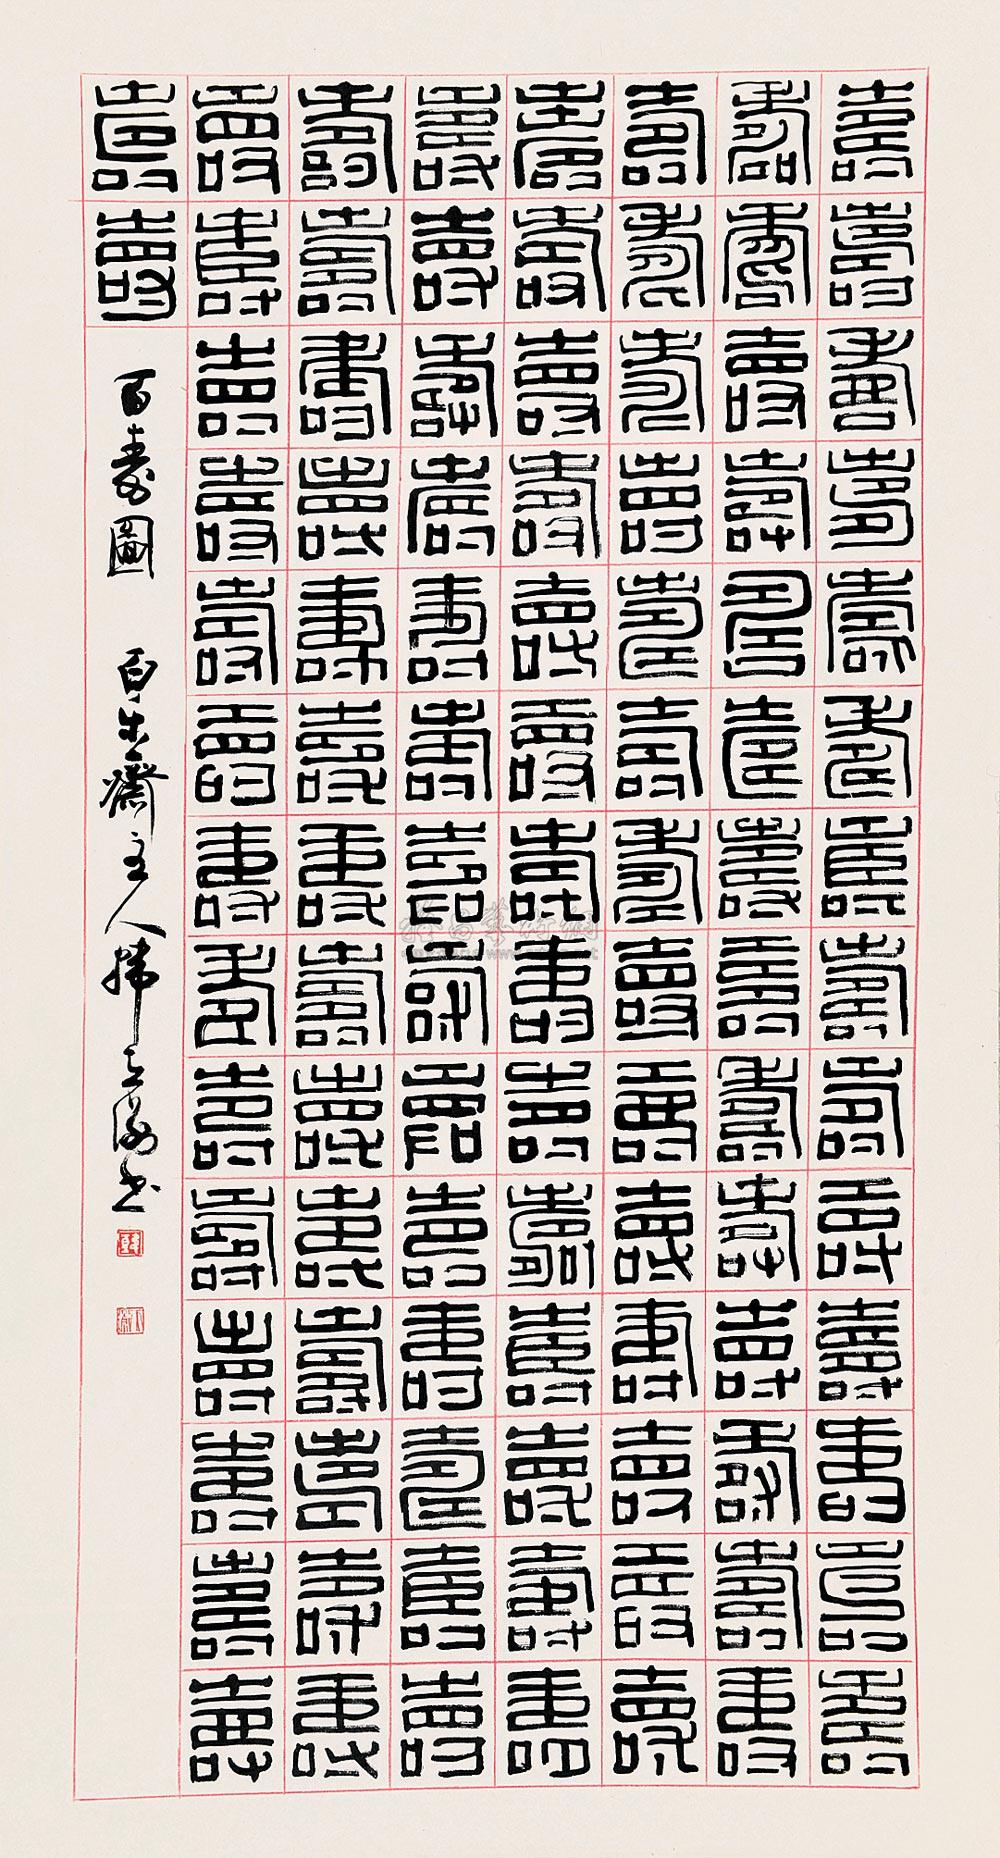 壽壽壽壽壽壽壽壽壽壽壽壽壽壽
壽壽壽壽壽壽壽壽壽壽壽壽壽壽
壽壽壽壽壽壽壽壽壽壽壽壽壽壽
壽壽壽壽壽壽壽壽壽壽壽壽壽壽
壽壽壽壽壽壽壽壽壽壽壽壽壽壽
壽壽壽壽壽壽壽壽壽壽壽壽壽壽
壽壽壽壽壽壽壽壽壽壽壽壽壽壽
壽壽
百壽圖 百乐齋主人韩天衡书